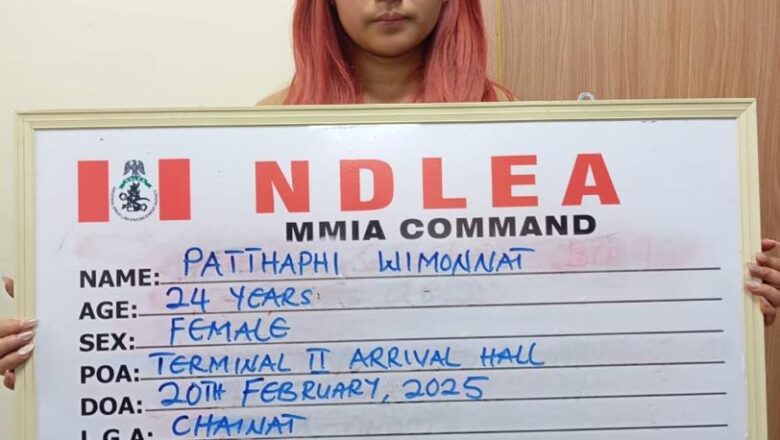 NDLEA
MMIA COMMAND
NAME: PATTHAPHI WIMONNAT
AGE: 24 YEARS
SEX: FEMALE
POA: TERMINAL II ARRIVAL HALL
DOA: 20TH FEBRUARY, 2025
L.G.A: CHAINAT